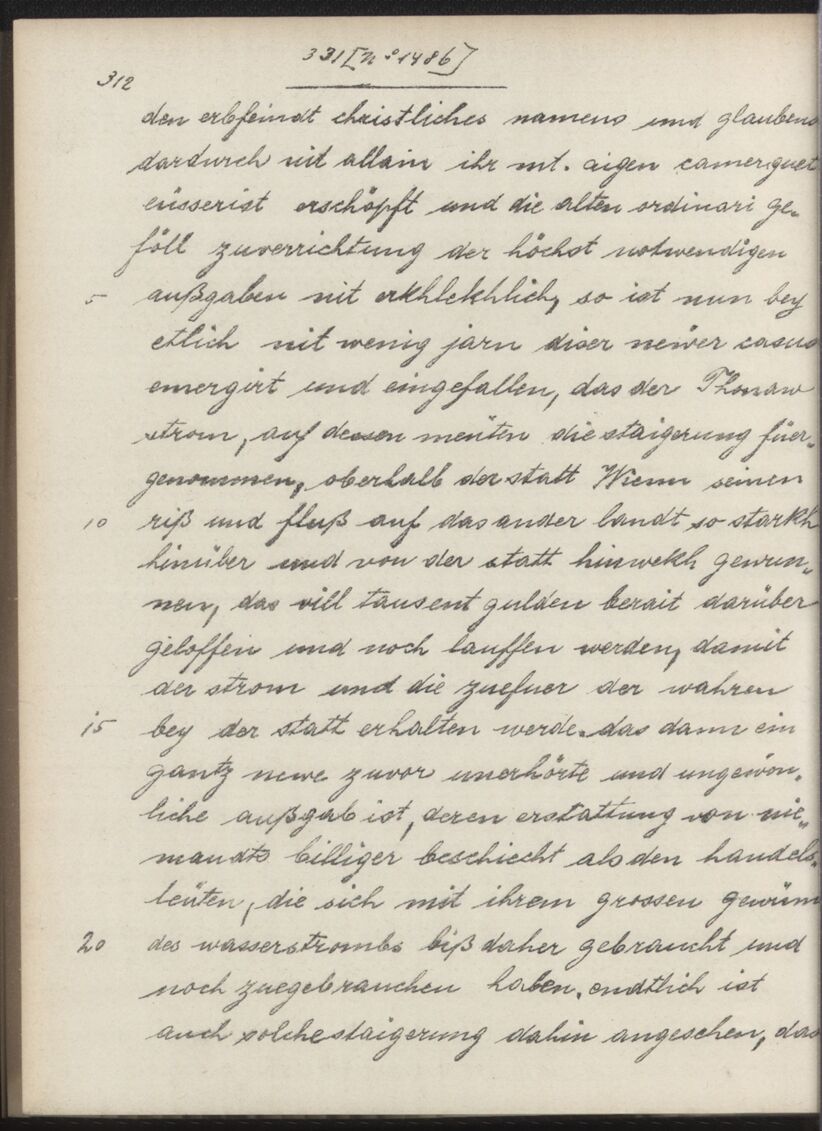 331 [No 1486]
312
den erbfeindt christliches namens und glaubens
dardurch nit allain ihr mt. aigen camerguet
eüsserist erschöpft und die alten ordinari ge„
föll zuverrichtung der höchst notwendigen
5 außgaben nit erkhlekhlich, so ist nun bey
etlich nit wenig jarn diser newer casus
emergirt und eingefallen, das der Thonaw
strom, auf dessen meüten die staigerung füer„
genommen, oberhalb der statt Wienn seinen
10 riß und fluß auf das ander landt so starkh
hinüber und von der statt hinwekh gewun„
nen, das vill tausent gulden berait darüber
geloffen und noch lauffen werden, damit
der strom und die zuefuer der wahren
15 bey der statt erhalten werde. das dann ein
gantz newe zuvor unerhörte und ungewön„
liche außgab ist, deren erstattung von nie„
mandts billiger beschiecht als den handels„
leüten, die sich mit ihrem grossen gewünn
20 des wasserstrombs biß daher gebraucht und
noch zuegebrauchen haben. endtlich ist
auch solche staigerung dahin angesehen, das